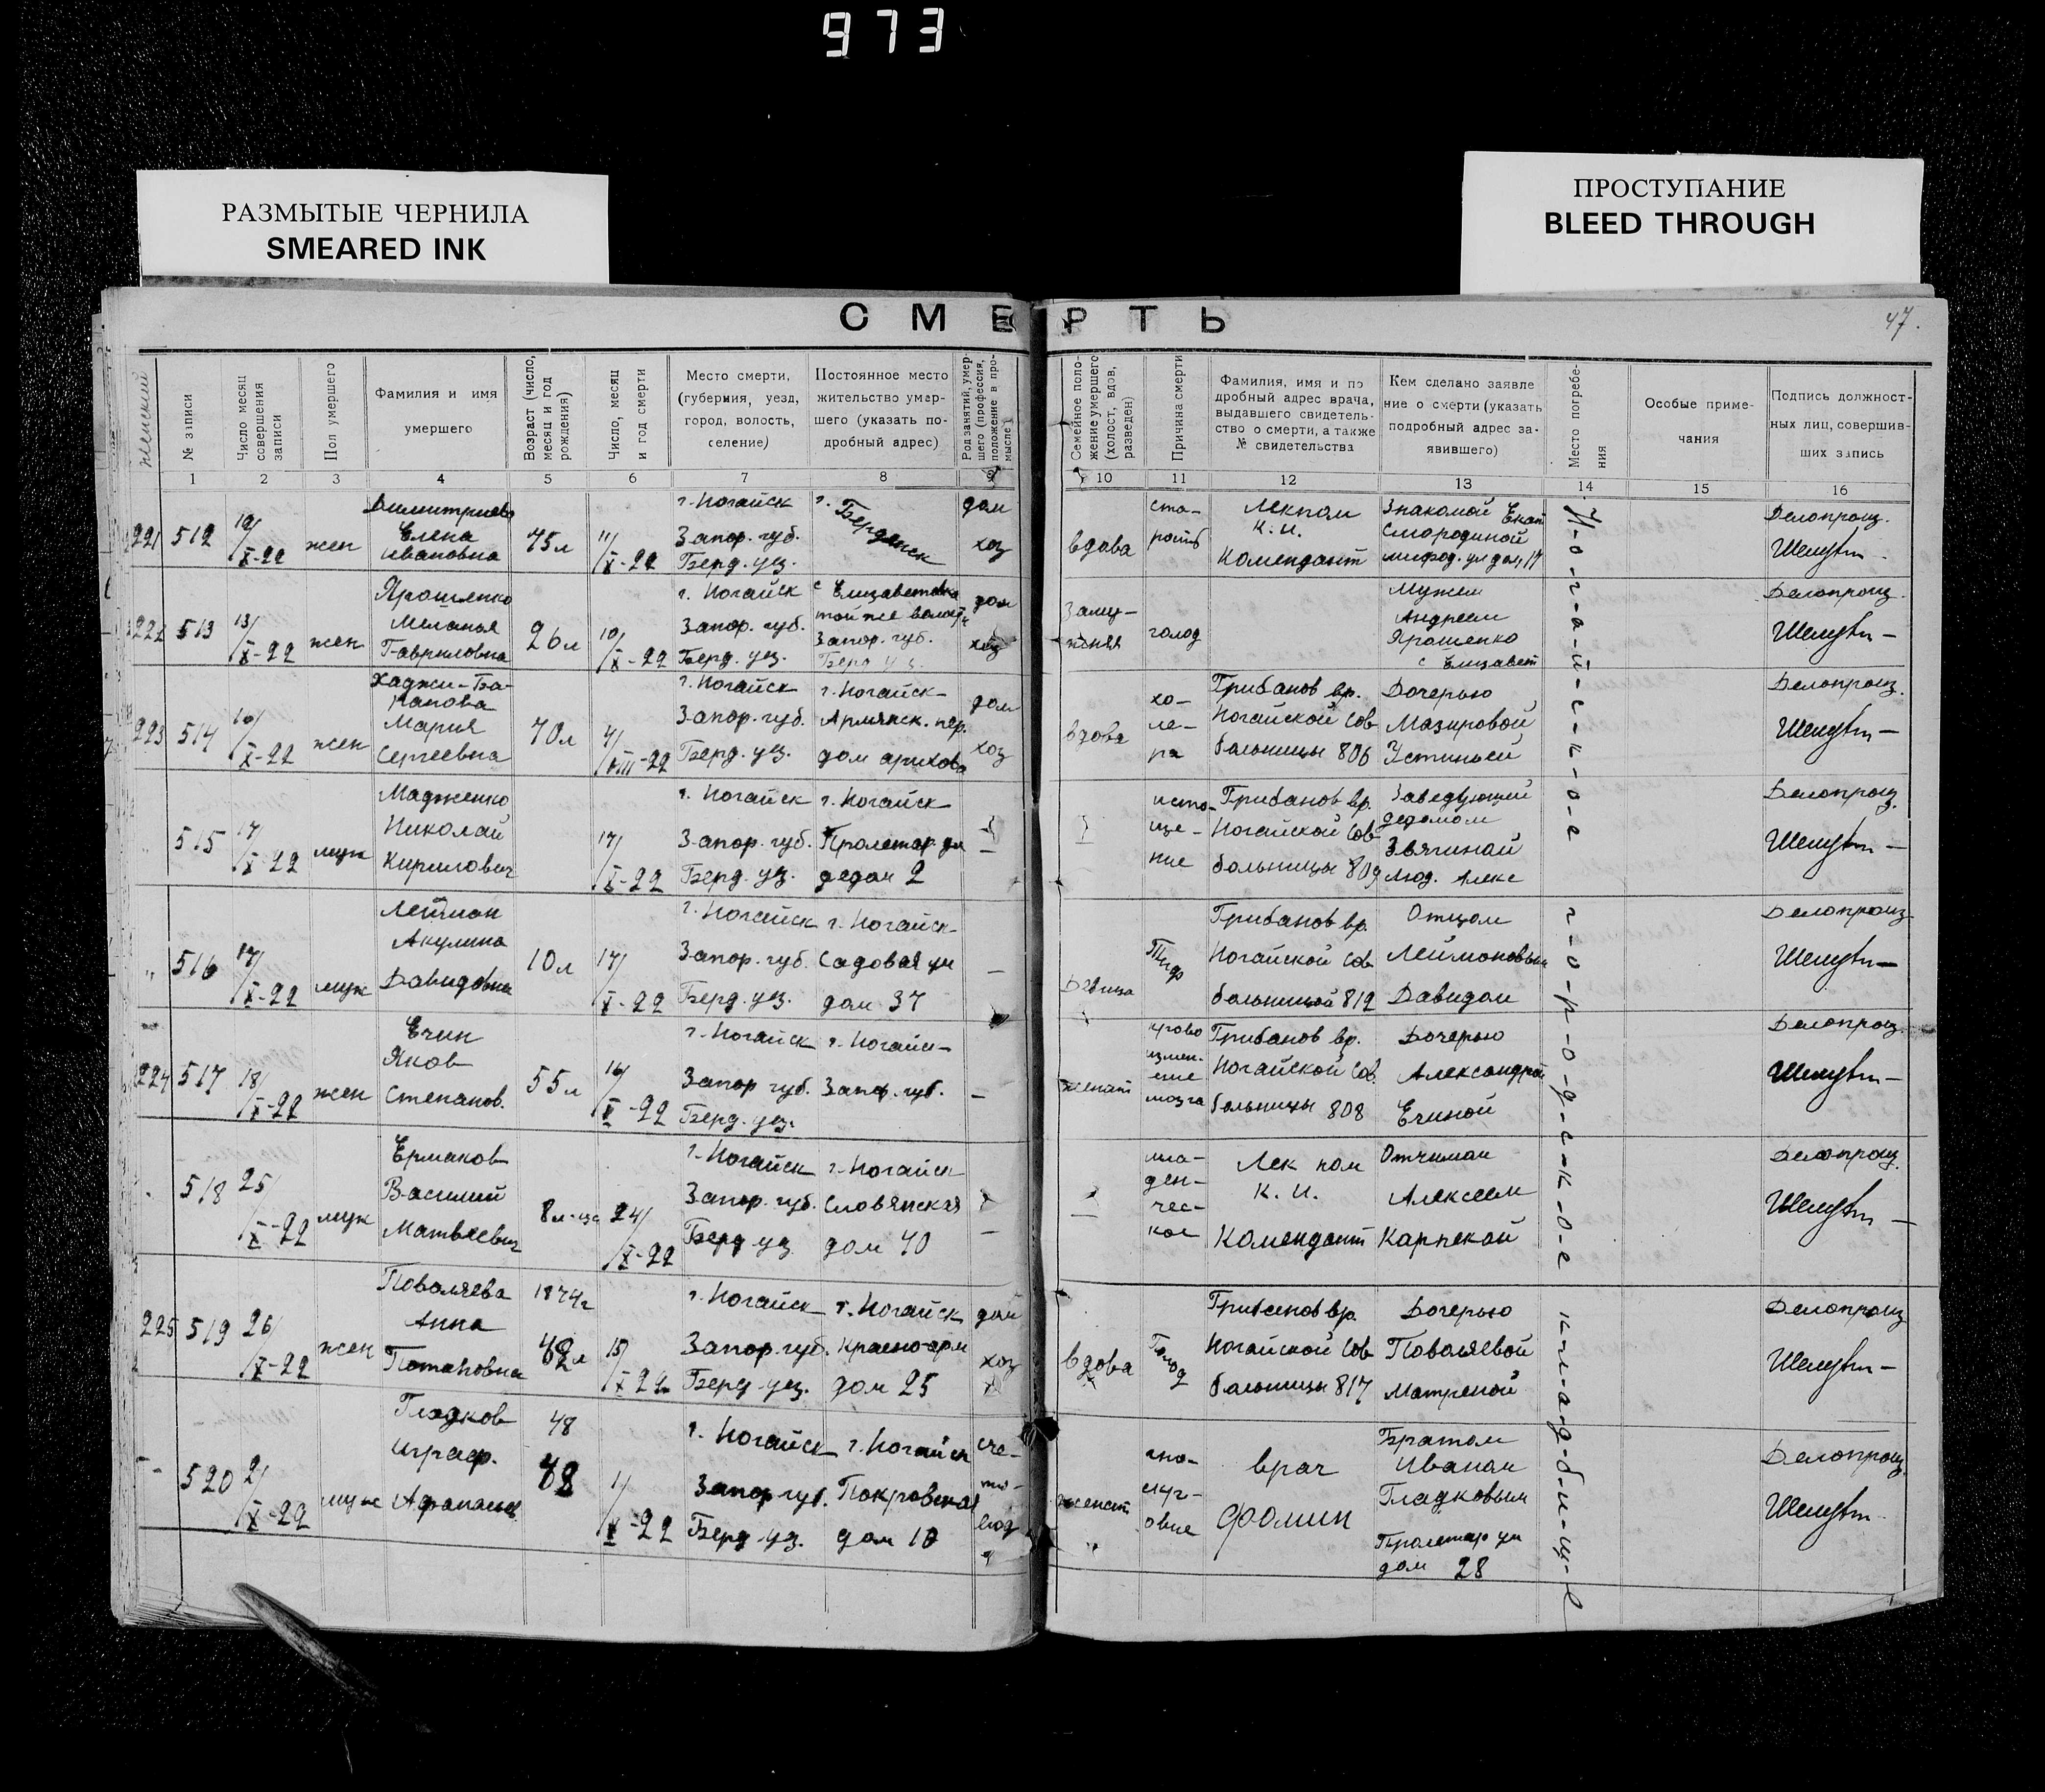 973
РАЗМЫТЫЕ ЧЕРНИЛА
SMEARED INK
ПРОСТУПАНИЕ
BLEED THROUGH
СМЕРТЬ
47.
женский
№ записи
Число месяц совершения записи
Пол умершего
Фамилия и имя умершего
Возраст (число, месяц и год рождения)
Число, месяц и год смерти
Место смерти, (губерния, уезд, город, волость, селение)
Постоянное место жительство умершего (указать подробный адрес)
Род занятий, умершего (профессия, положение в промысле)
Семейное положение умершего (холост, вдов, разведен)
Причина смерти
Фамилия, имя и подробный адрес врача, выдавшего свидетельство о смерти, а также № свидетельства
Кем сделано заявление о смерти (указать подробный адрес заявившего)
Место погребения
Особые примечания
Подпись должностных лиц, совершивших запись
1 2 3 4 5 6 7 8 9 10 11 12 13 14 15 16
221 512 12/X-22 жен Димитриева Елена Ивановна 75 л 11/X-22 г. Ногайск Запор. губ. Берд. уез. г. Бердянск дом хоз вдова старость Лекпом К. И. Комендант Знакомой Екат Смородиной мифод. ул дом, 17 Делопроиз.
222 513 13/X-22 жен Ярошенко Меланья Гавриловна 26 л 10/X-22 г. Ногайск Запор. губ. Берд. уез. с Елизаветовка той же волост Запор. губ. Берд уз. дом хоз Замужняя голод Мужем Андреем Ярошенко с Елизавет Делопроиз.
223 514 16/X-22 жен Хаджи-Ба- Мария Сергеевна 70 л 4/VIII-22 г. Ногайск Запор. губ. Берд. уез. г. Ногайск Армянск. пер. дом дом хоз вдова холера Грибанов вр. Ногайской Сов больницы 806 Дочерью Мазировой Устиньей Делопроиз.
515 17/X-22 муж Мадженко Николай Кирилович 17/X-22 г. Ногайск Запор. губ. Берд. уз. г. Ногайск Пролетар. ул дедом 2 — истощение Грибанов вр. Ногайской Сов больницы 809 Заведующей дедомом Звягиной Люд. Алекс Делопроиз.
" 516 17/X-22 муж Леймон Акулина Давидовна 10 л 17/X-22 г. Ногайск Запор. губ. Берд. уез. г. Ногайск Садовая ул дом 37 — Девица Тиф Грибанов вр. Ногайской Сов больницой 812 Отцом Леймоновым Давидом Делопроиз.
224 517 18/X-22 жен Ечин Яков Степанов. 55 л 16/X-22 г. Ногайск Запор губ. Берд. уез. г. Ногайск Запор. губ. — женат мозга Грибанов вр. Ногайской Сов. больницы 808 Дочерью Александрой Ечиной Делопроиз.
518 25/X-22 муж Ермаков Василий Матвеевич 8 м-ца 24/X-22 г. Ногайск Запор. губ. Берд уз. г. Ногайск Словянская дом 40 — младенческое Лек пом К. И. Комендант Отчимом Алексеем Карпекой Делопроиз.
225 519 26/X-22 жен Поволяева Анна Потаповна 1874 г 48 л 15/X-22 г. Ногайск Запор. губ. Берд уез. г. Ногайск Красно-арм дом 25 дом хоз вдова Голод Грибанов вр. Ногайской Сов больницы 817 Дочерью Поволяевой Матреной Делопроиз.
520 2/X-22 муж Гладков Играф. Афанасьев 48 48 1/X-22 г. Ногайск Запор губ. Берд уз. г. Ногайск Покровская дом 10 счетовод женат врач Фомин Братом Иваном Гладковым Пролетар ул дом 28 Делопроиз.
Н-о-г-а-й-с-к-о-е г-о-р-о-д-с-к-о-е к-л-а-д-б-и-щ-е